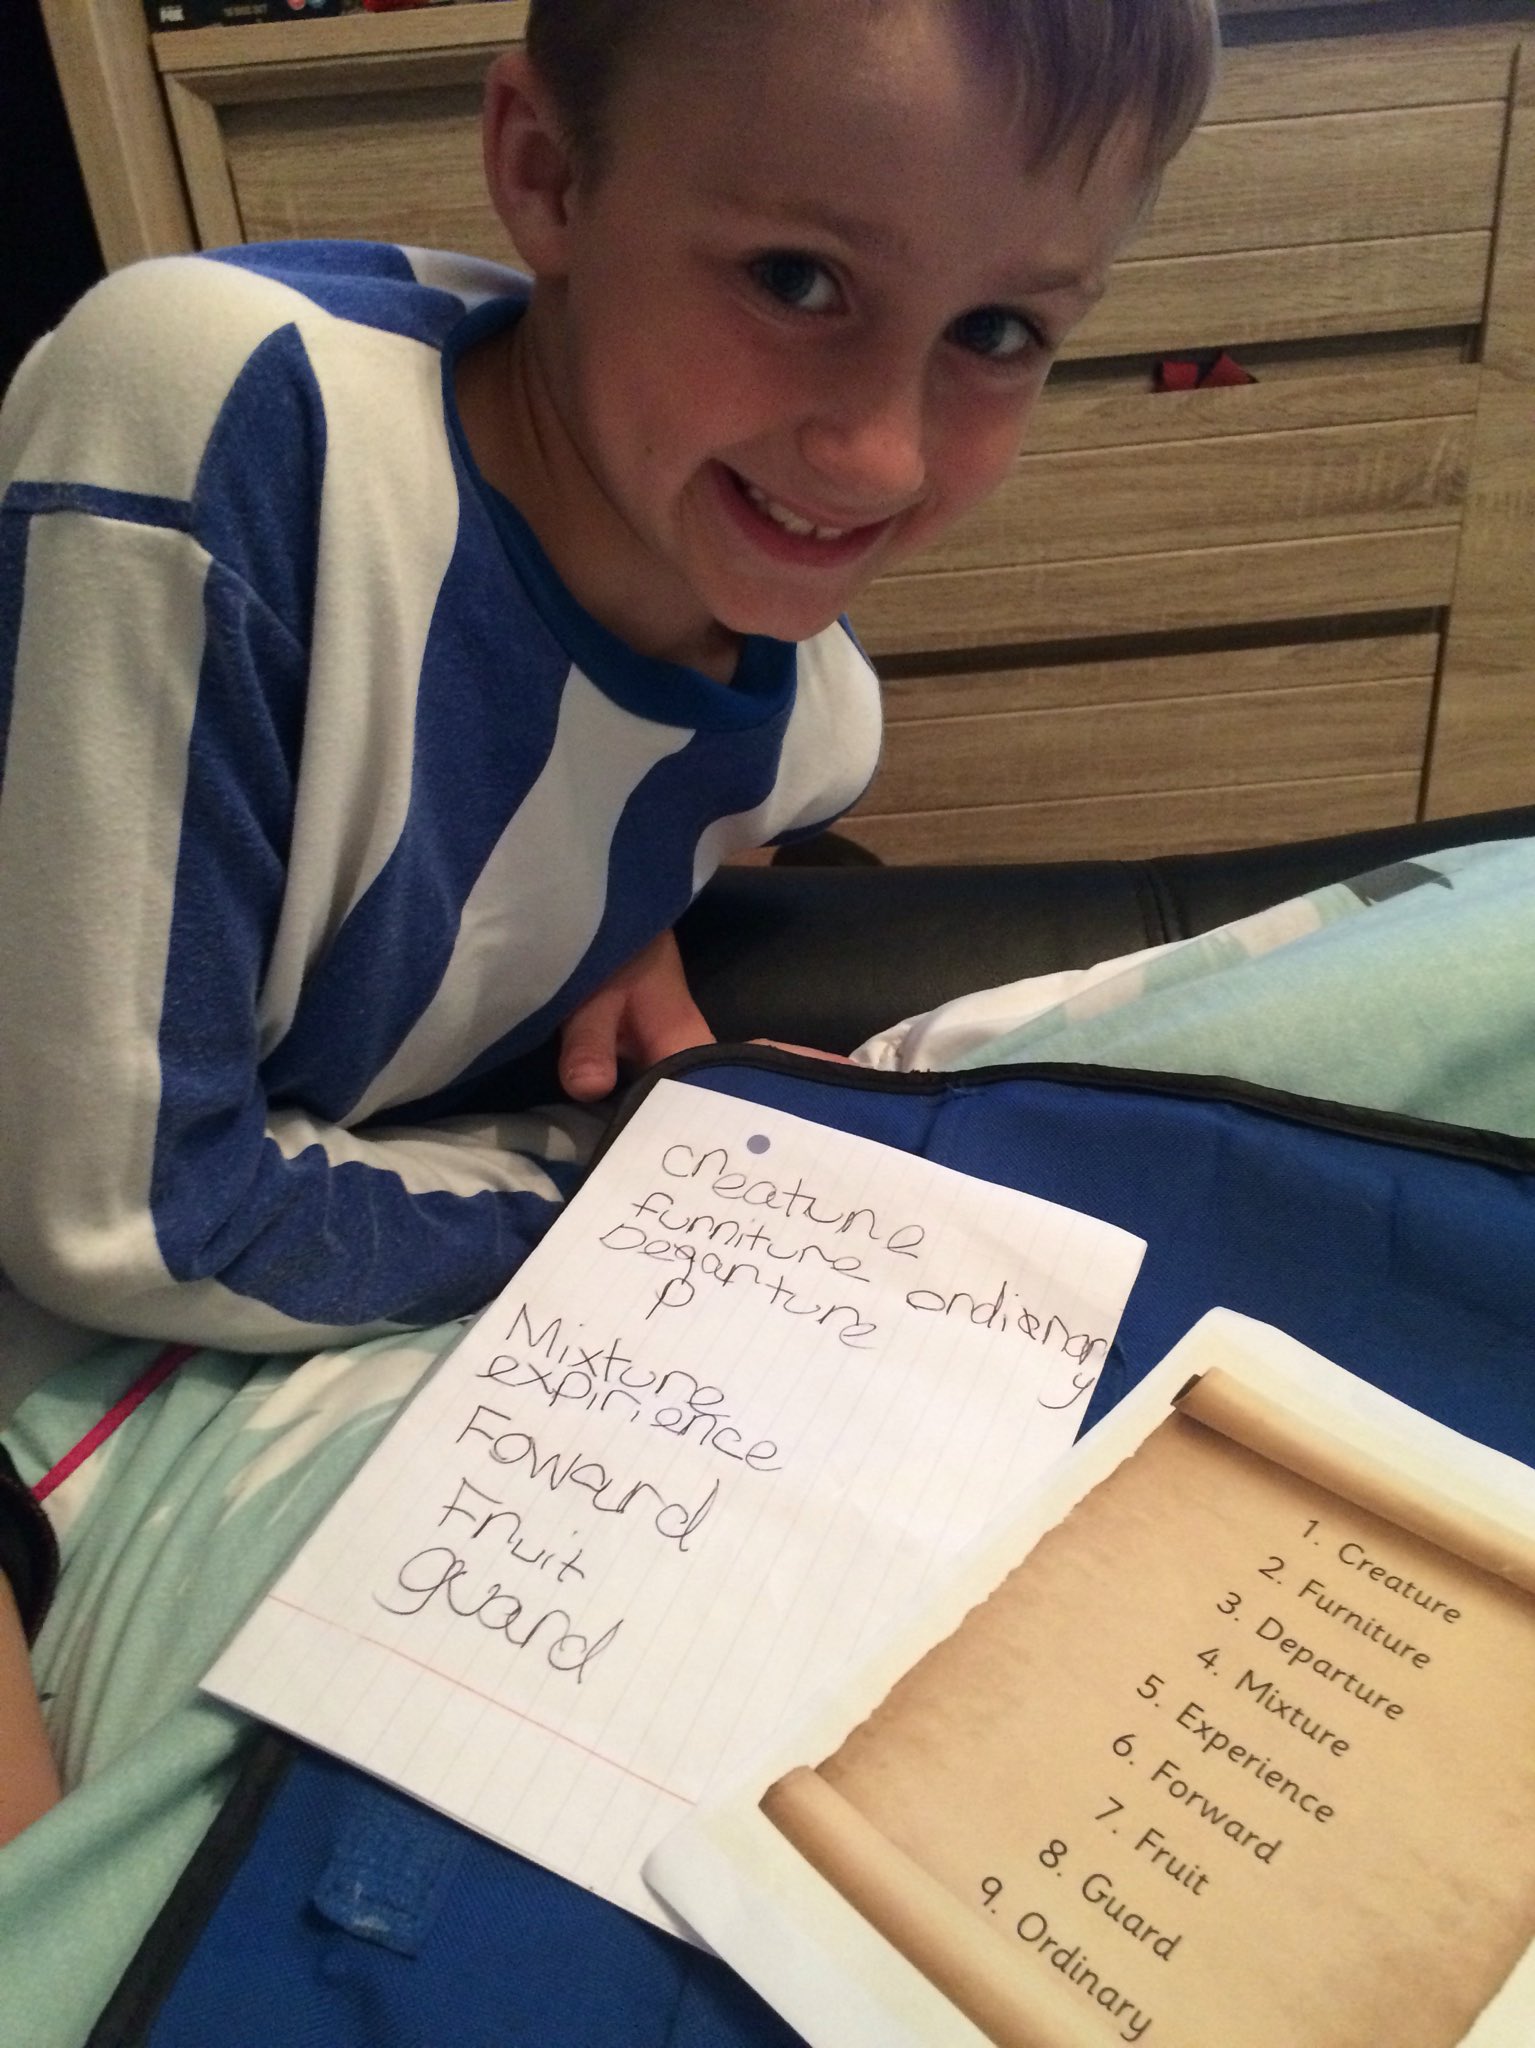 creature
furniture
Degarture
p
ordienary
y
Mixture
expirience
Foward
Fruit
guard
1. Creature
2. Furniture
3. Departure
4. Mixture
5. Experience
6. Forward
7. Fruit
8. Guard
9. Ordinary
FOX